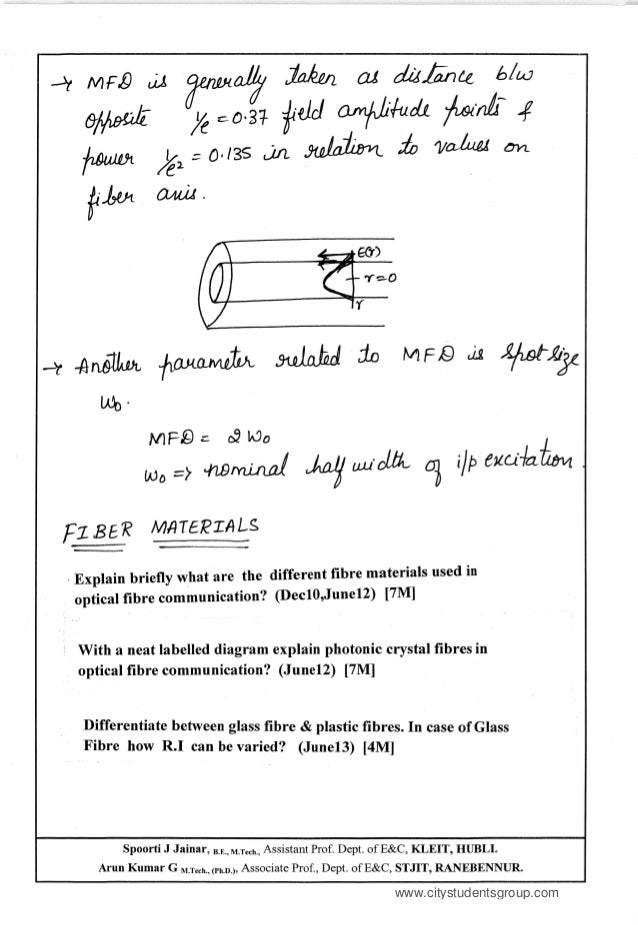 → MFD is generally taken as distance b/w
opposite 1/e = 0.37 field amplitude points &
power 1/e2 = 0.135 in relation to values on
fiber axis.
E(r)
r=0
r
→ Another parameter related to MFD is Spot size
W0.
MFD = 2 W0
W0 => nominal half width of i/p excitation.
FIBER MATERIALS
Explain briefly what are the different fibre materials used in
optical fibre communication? (Dec10,June12) [7M]
With a neat labelled diagram explain photonic crystal fibres in
optical fibre communication? (June12) [7M]
Differentiate between glass fibre & plastic fibres. In case of Glass
Fibre how R.I can be varied? (June13) [4M]
Spoorti J Jainar, B.E., M.Tech., Assistant Prof. Dept. of E&C, KLEIT, HUBLI.
Arun Kumar G M.Tech., (Ph.D.), Associate Prof., Dept. of E&C, STJIT, RANEBENNUR.
www.citystudentsgroup.com